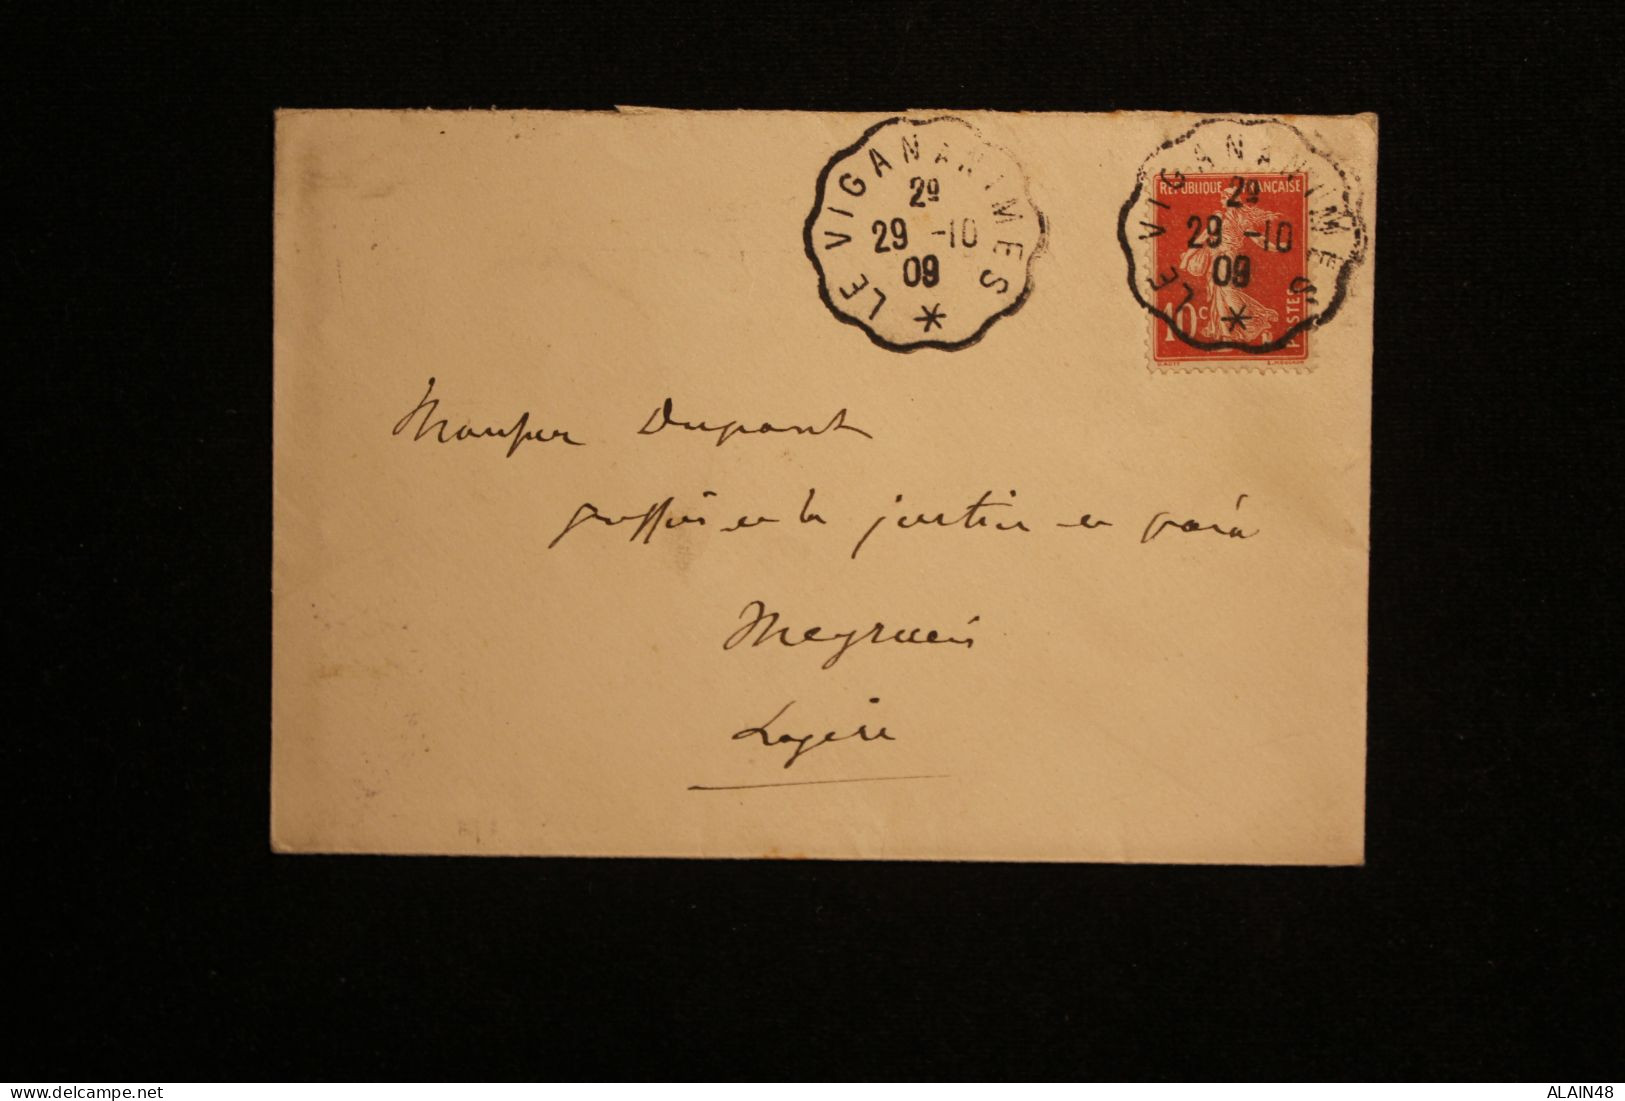 LE VIGAN A NIMES
2º
29 -10
09
LE VIGAN A NIMES
2º
29 -10
09
REPUBLIQUE FRANÇAISE
10c
POSTES
Monsieur Dupont
greffier de la justice de paix
Meyrueis
Lozère
www.delcampe.net
ALAIN48